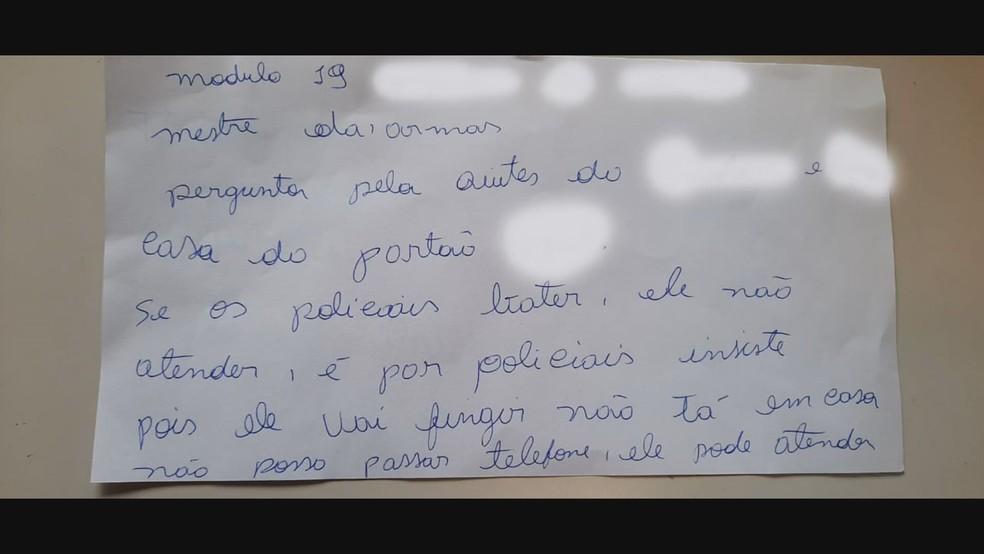 modulo 19
mestre da, armas
pergunta pela do e
casa do portão
se os policiais bater, ele não
atender, é por policiais insiste
pois ele vai fingir não tá em casa
não posso passar telefone, ele pode atender